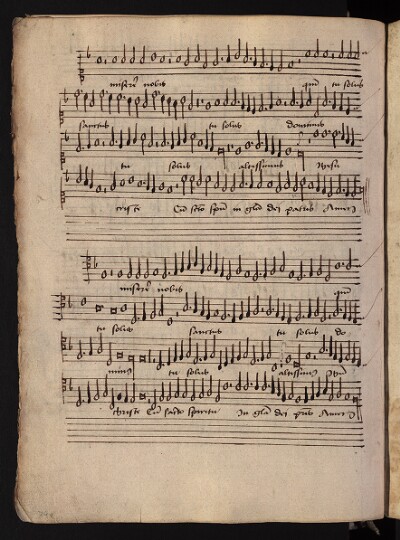 miserere nobis quoniam tu solus
sanctus tu solus dominus
tu solus altissimus Jesu
criste Cum sancto spiritu in gloria dei patris Amen
miserere nobis quoniam
tu solus sanctus tu solus do
minus tu solus altissimus Jesu
christe Cum sancto spiritu In gloria dei patris Amen